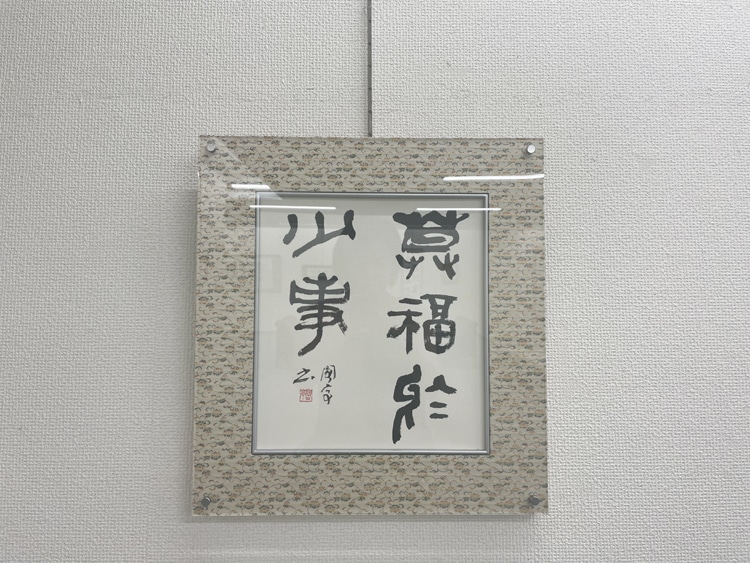 莫福於
少事